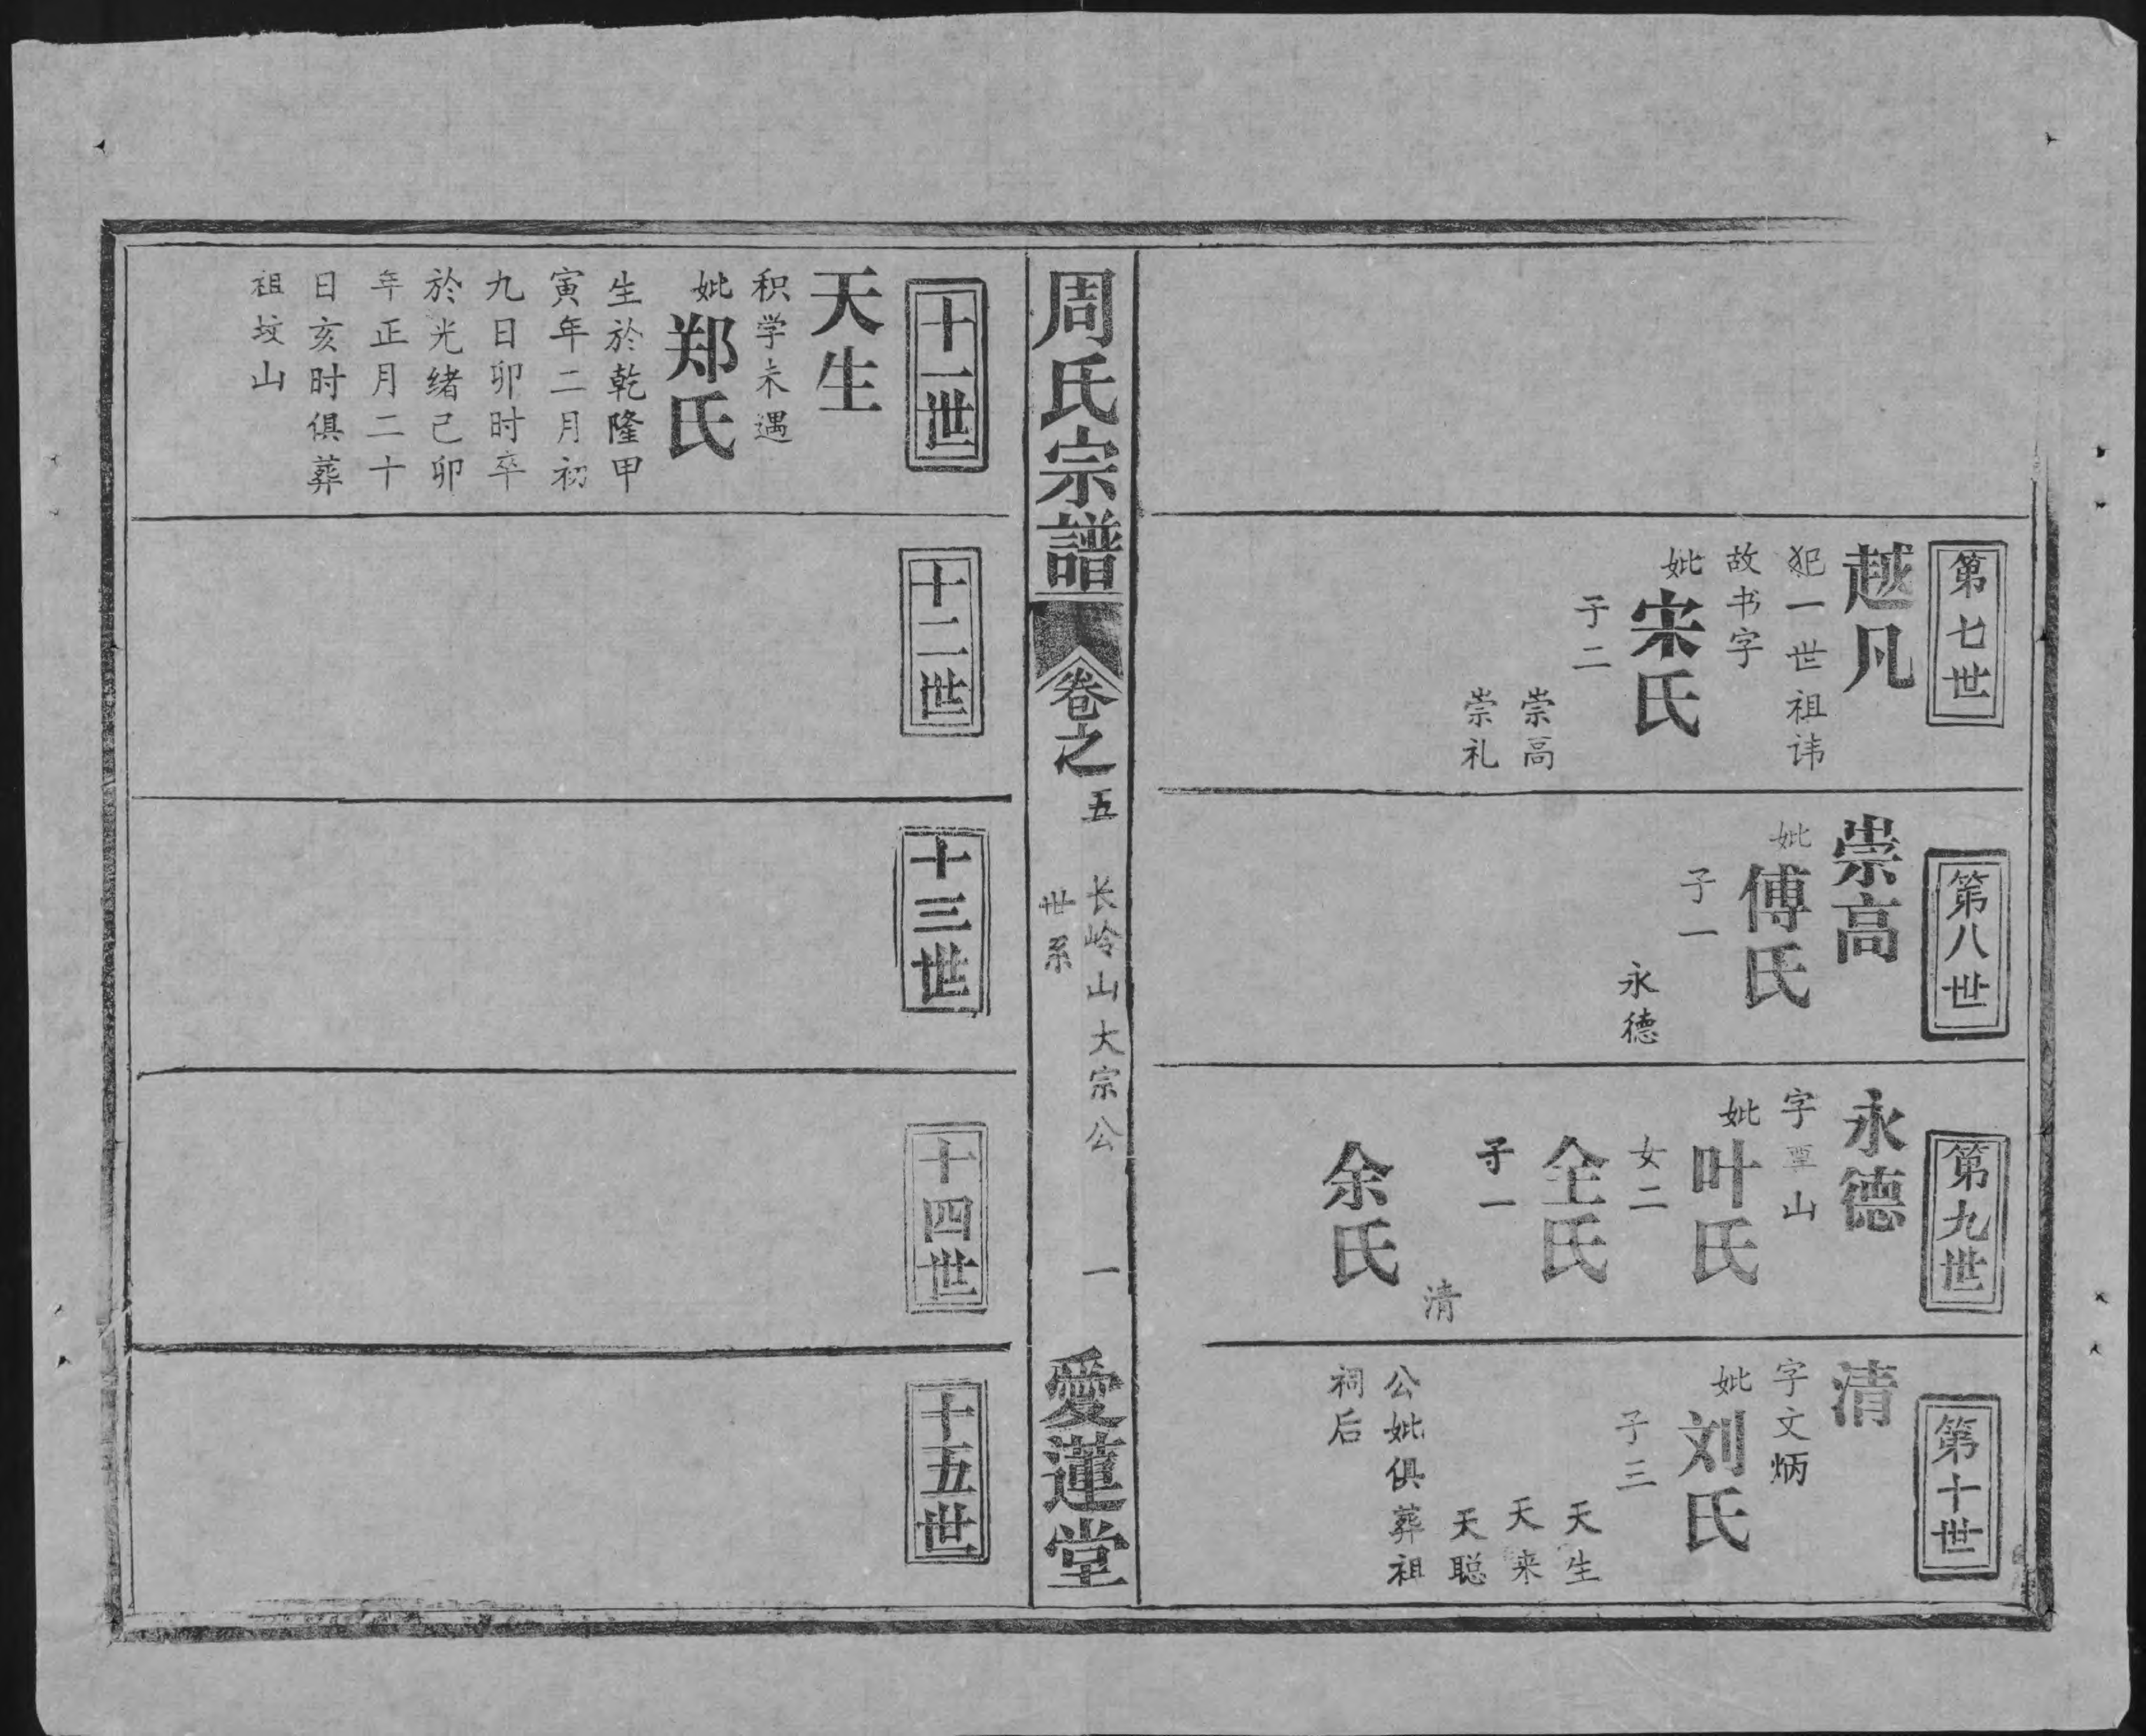 第七世
越凡
犯一世祖讳
故书字
妣宋氏
子二
崇高
崇礼
第八世
崇高
妣傅氏
子一
永德
第九世
永德
字覃山
妣叶氏
女二
全氏
子一
清
余氏
第十世
清
字文炳
妣刘氏
子三
天生
天来
天聪
公妣俱葬祖
祠后
周氏宗譜
卷之五
长岭山大宗公
世系
一
愛蓮堂
十一世
天生
积学未遇
妣郑氏
生於乾隆甲
寅年二月初
九日卯时卒
於光绪己卯
年正月二十
日亥时俱葬
祖坟山
十二世
十三世
十四世
十五世